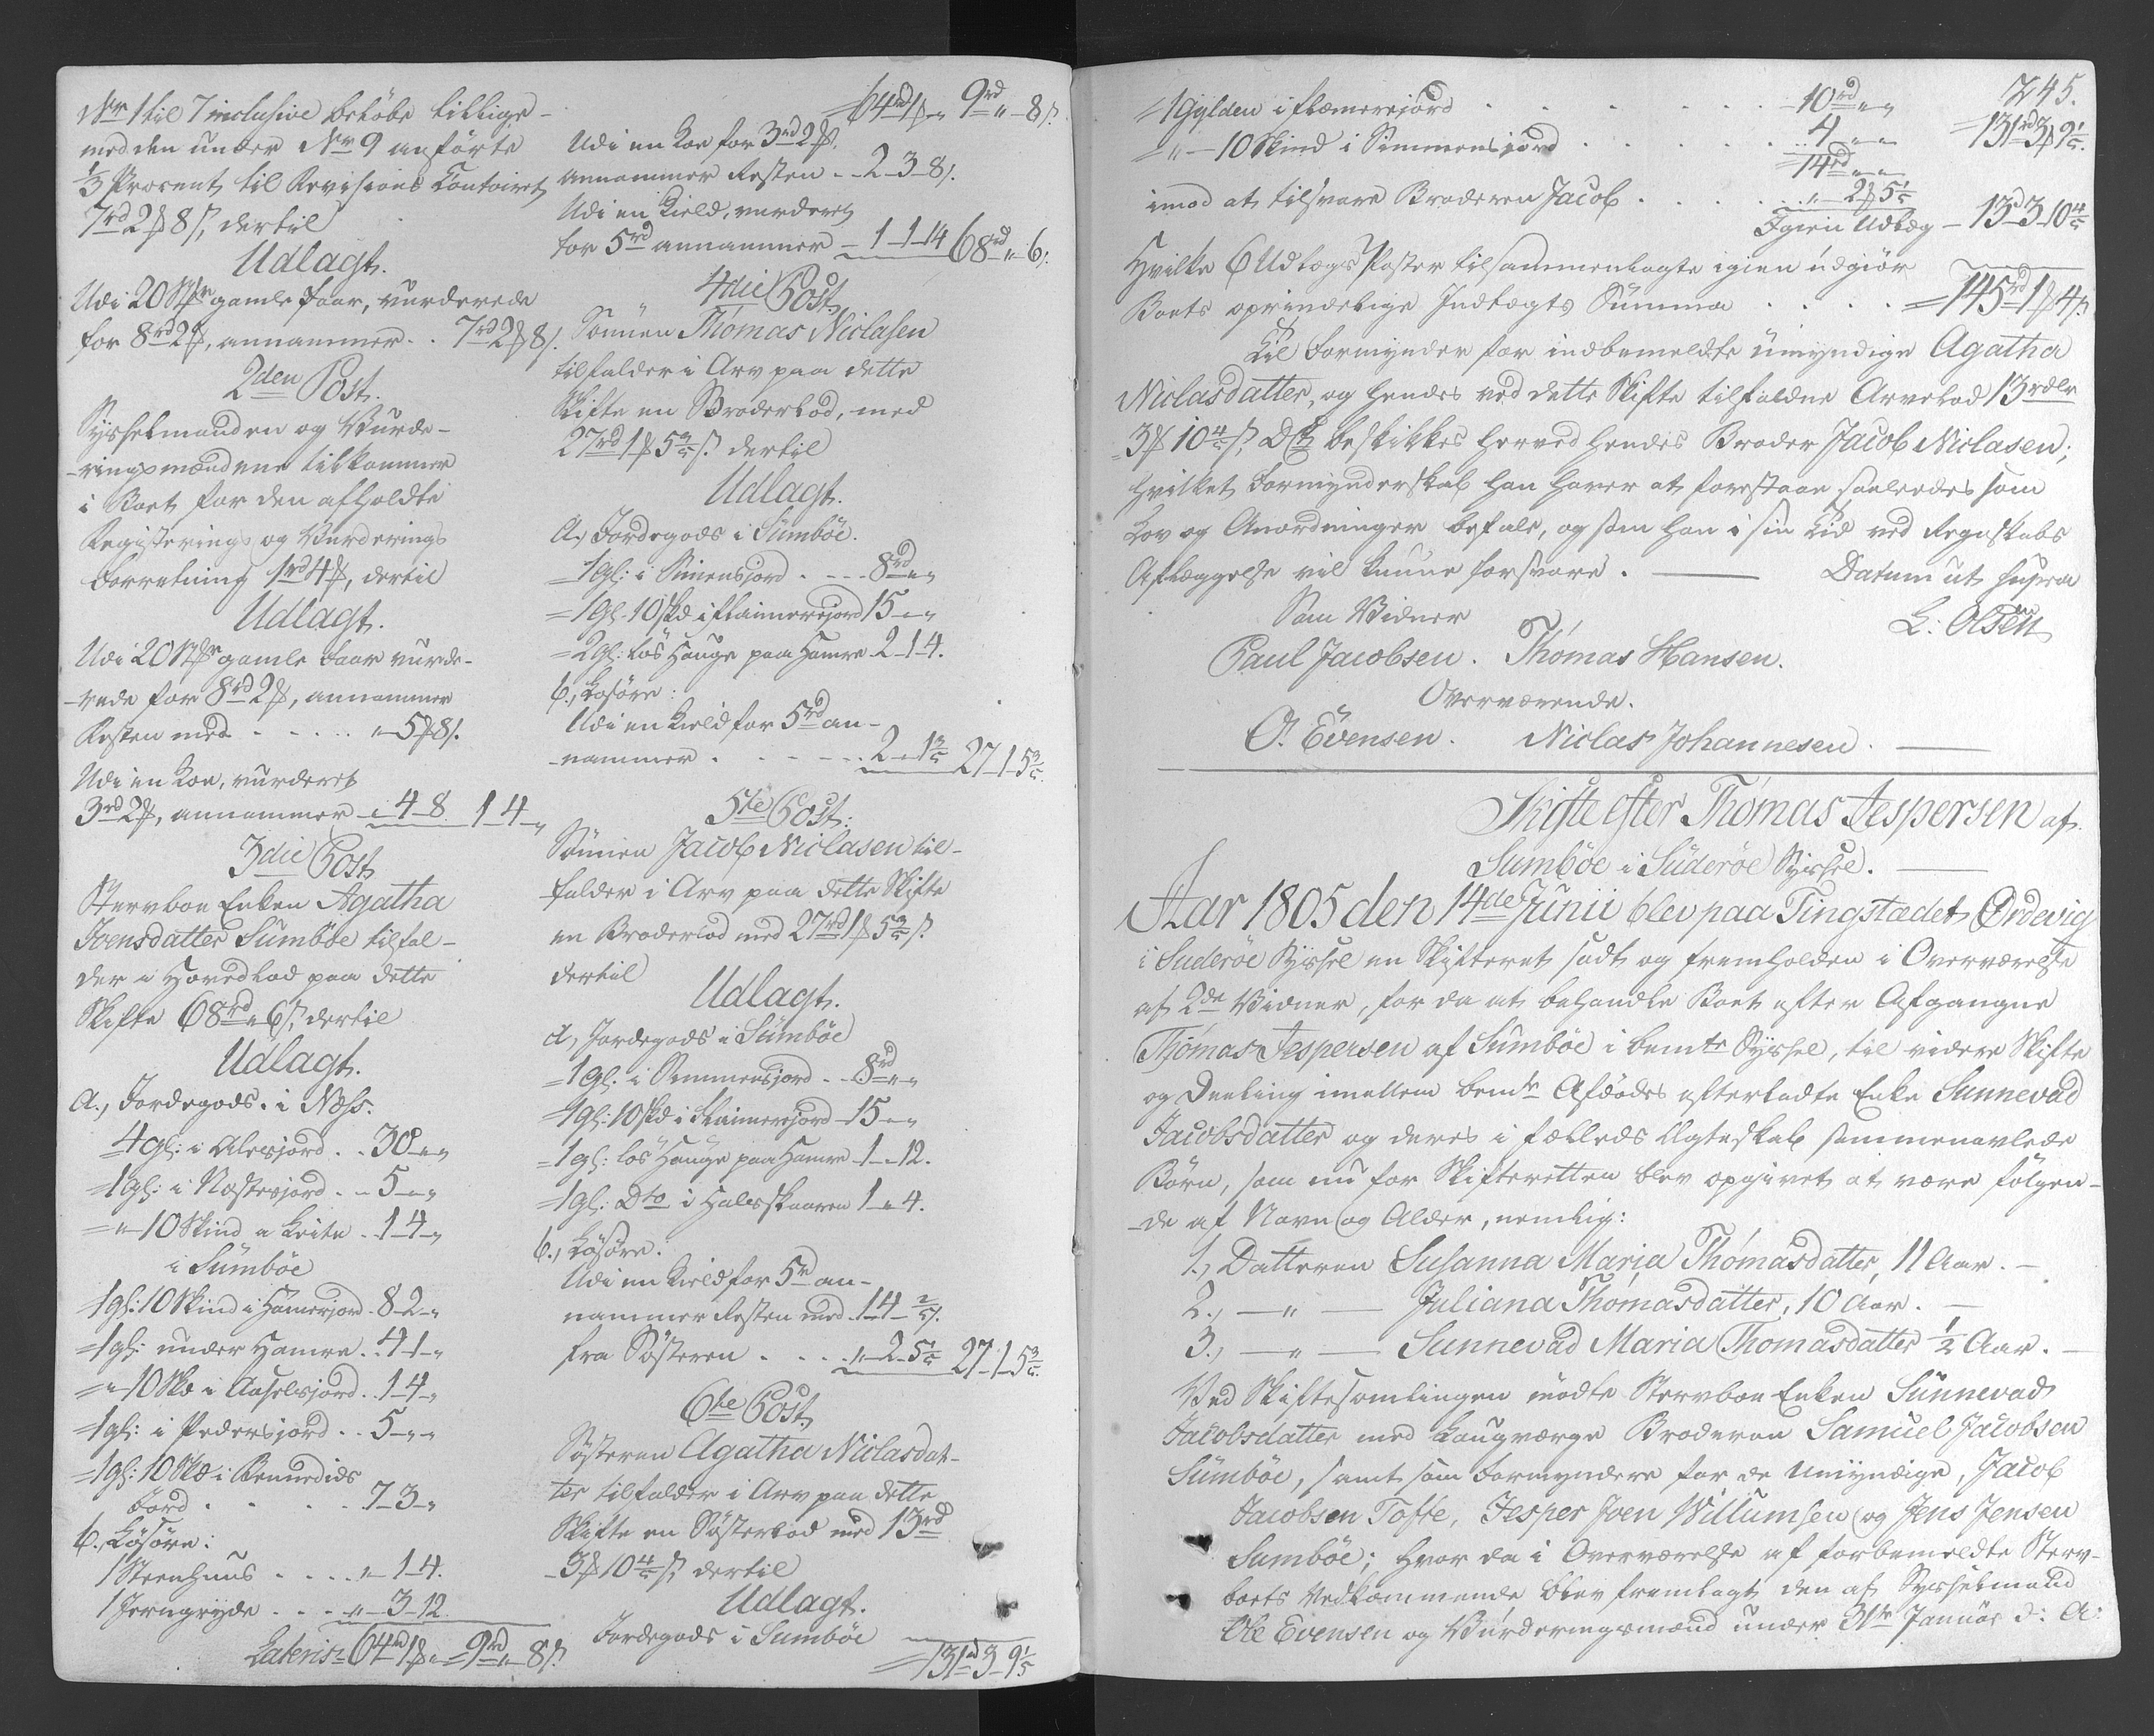 No 1 til 7 inclusive beløbe tillige-
med den under No 9 anførte
1/3 Procent til Revisions Contoiret
7rd 2ß 8 s, dertil
Udlagt.
Udi 20 Stkr gamle Faar, vurderede
for 8rd 2ß, annammer . . 7rd 2ß 8 s.
2den Post.
Sysselmanden og Vurde-
-ringsmændene tilkommer
i Boet for den afholdte
Registerings og Vurderings
Forretning 1rd 4ß, dertil
Udlagt.
Udi 20 Stkr gamle Faar vurde-
-rede for 8rd 2ß, annammer
Resten med . . . . . " 5ß 8 s.
Udi en Koe, vurderet
3rd 2ß, annammer - " 4 - 8 1 - 4 - "
3die Post
Stervboe Enken Agatha
Joensdatter Sumbøe tilfal-
der i Hovedlod paa dette
Skifte 68rd " 6 s, dertil
Udlagt.
a., Jordegods. i Næss.
4 gl: i Alesjord . . 30 - " - "
1 gl: i Næstesjord . . 5 - " - "
= " - 10 Skind a Leite . 1 - 4 - "
i Sumbøe
1 gl: 10 Skind i Hamerjord . 8 - 2 - "
1 gl: under Hamre . 4 - 1 - "
= " 10 Skd i Aaselsjord . 1 - 4 - "
1 gl: i Pedersjord . . 5 - " - "
1 gl: 10 Skd i Bennedids
Jord . . . . . 7 - 3 - "
b., Løsøre:
1 Steenhuus . . . . " - 1 - 4.
1 Jerngryde . . . " - 3 - 12.
Lateris = 64rd 1ß " = 9rd " - 8 s.
= 64rd 1ß " 9rd " - 8 s.
Udi en Koe for 3rd 2ß,
annammer Resten . . 2 - 3 - 8 s.
Udi en Kield, vurderet
for 5rd annammer - 1 - 1 - 14 68rd " 6 s.
4die Post
Sønnen Thomas Niclasen
tilfalder i Arv paa dette
Skifte en Broderlod, med
27rd 1ß 5 3/5 s. dertil
Udlagt.
a., Jordegods i Sümböe.
= 1 gl: i Simensjord . . . 8rd " - "
= 1 gl. 10 skd i Flaimerejord 15 - " - "
= 2 gl: løs Hauge paa Hamre 2 - 1 - 4.
b., Løsøre:
Udi en Kield for 5rd an-
-nammer . . . . . . . 2 - " 1 3/5 27 - 1 - 5 3/5.
5te Post:
Sønnen Jacob Niclasen til-
falder i Arv paa dette Skifte
en Broderlod med 27rd 1ß 5 3/5 s.
dertil
Udlagt.
a, Jordegods i Sümböe
= 1 gl. i Simmensjord . . 8rd " - "
= 1 gl: 10 skd i Flaimerejord 15 - " - "
= 1 gl: løs Hauge paa Hamre 1 - " - 12.
= 1 gl: Dto i Halesskaaren 1 - " - 4.
b., Løsøre.
Udi en Kield for 5rd an-
nammer Resten med . 1 - 4 - 2/5 s.
fra Søsteren . . . . " - 2 - 5 1/5 27 - 1 - 5 3/5.
6te Post
Søsteren Agatha Niclasdat-
ter tilfalder i Arv paa dette
Skifte en Søsterlod med 13rd
3ß 10 4/5 s, dertil
Udlagt.
Jordegods i Sumbøe
= 131rd 3 - 9 1/5
245.
= 1 Gylden i Flæmerejord . . . . . . . - 10rd " - "
= " - 10 Skind i Simmensjord . . . . . . . . 4 " - "
14rd " - "
= 131rd 3ß 9 1/5.
imod at tilsvare Broderen Jacob . . . . . . " - 2ß 5 1/5
Igien Udlæg - 13rd 3 - 10 4/5
Hvilke 6 Udlægs Poster tilsammenlagte igien udgiør
Boets oprindelige Indtægts Summa . . . . = 145rd 1ß 4 s.
Til Formynder for indbemeldte umyndige Agatha
Niclasdatter, og hendes ved dette Skifte tilfaldne Arvelod 13rdlr
3ß 10 4/5 s, beskikkes herved hendes Broder Jacob Niclasen;
hvilket Formynderskab han haver at forestaae saaledes som
Lov og Anordninger befale, og som han i sin Tid ved Regnskabs
Aflæggelse vil kunne forsvare. — Datum ut supra
Som Vidner L: Olsen
Paul Jacobsen. Thomas Hansen.
Overværende.
O. Evensen. Niclas Johannesen. —
Skifte efter Thomas Jespersen af
Sumbøe i Süderøe Syssel. —
Aar 1805 den 14de Junii blev paa Tingstædet Ordevig
i Suderøe Syssel en Skifteret sadt og fremholden i Overværelse
af 2de Vidner, for da at behandle Boet efter Afgangne
Thomas Jespersen af Sumbøe i bemte Syssel, til videre Skifte
og Deeling imellem bemte Afdødes efterladte Enke Sunnevad
Jacobsdatter og deres i fælleds Ægteskab sammenavlede
Børn, som nu for Skifteretten blev opgivet at være følgen-
-de af Navn og Alder, nemlig:
1., Datteren Susanna Maria Thomasdatter, 11 Aar. —
2., — " — Juliana Thomasdatter, 10 Aar. —
3., — " — Sunnevad Maria Thomasdatter 1/2 Aar. —
Ved Skiftesamlingen mødte Stervboe Enken Sunnevad
Jacobsdatter med Laugværge Broderen Samuel Jacobsen
Sümbøe, samt som Formyndere for de Umyndige, Jacob
Jacobsen Tofte, Jesper Joen Willumsen og Jens Jensen
Sumbøe; hvor da i Overværelse af forbemeldte Sterv-
boets Vedkommende blev fremlagt den af Sysselmand
Ole Evensen og Vurderingsmænd under 31te Januar d: A: